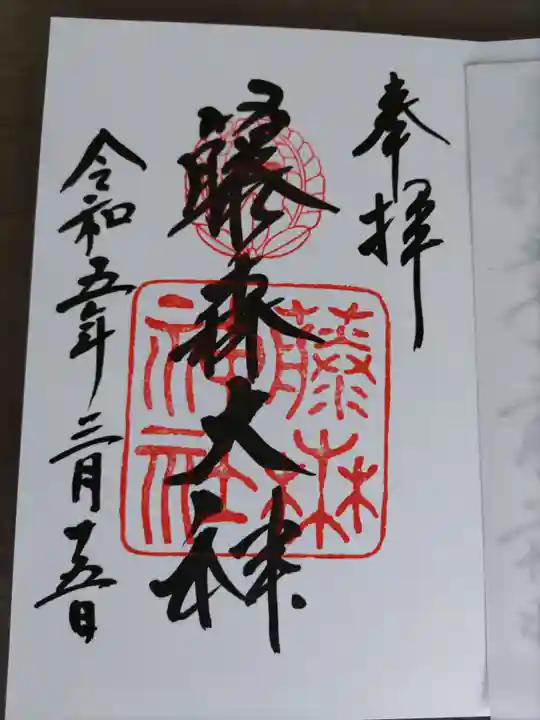 奉拝
藤森大神
藤森
神社
令和五年三月十五日